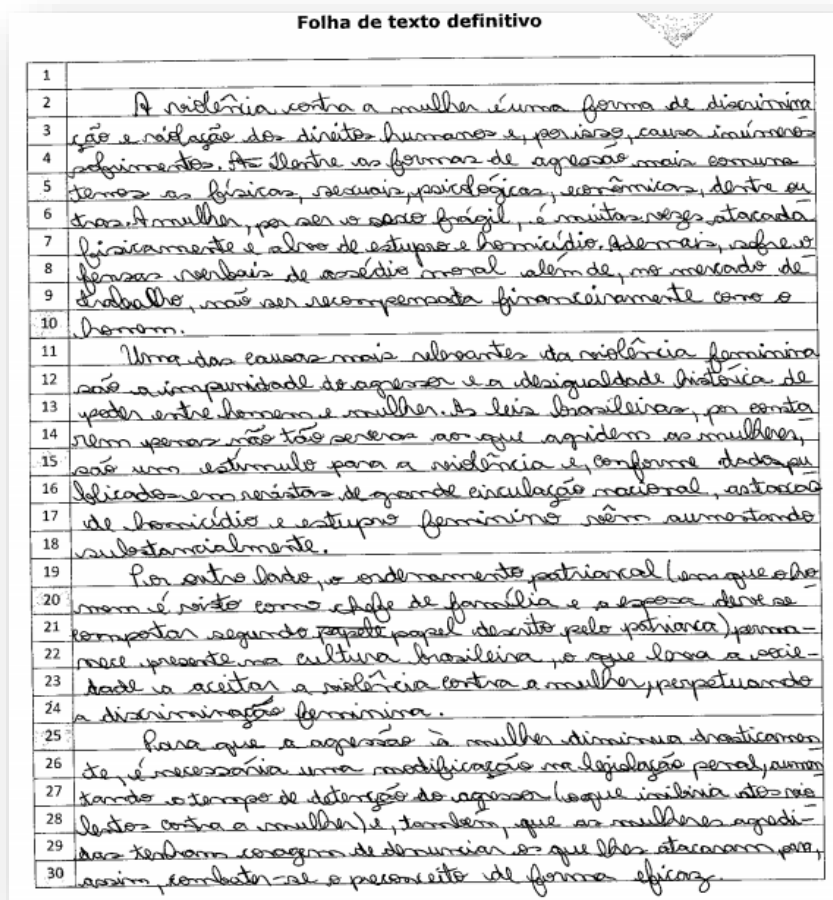 Folha de texto definitivo
1
2 A violência contra a mulher é uma forma de discrimina
3 ção e violação dos direitos humanos e, por isso, causa inúmeros
4 sofrimentos. As Dentre as formas de agressão mais comuns
5 temos as físicas, sexuais, psicológicas, econômicas, dentre ou
6 tras. A mulher, por ser o sexo frágil, é muitas vezes atacada
7 fisicamente e alvo de estupro e homicídio. Ademais, sofre o
8 fensas verbais de assédio moral além de, no mercado de
9 trabalho, não ser recompensada financeiramente como o
10 homem.
11 Uma das causas mais relevantes da violência feminina
12 são a impunidade do agressor e a desigualdade histórica de
13 poder entre homem e mulher. As leis brasileiras, por consta
14 rem penas não tão severas aos que agridem as mulheres,
15 são um estímulo para a violência e, conforme dados pu
16 blicados em revistas de grande circulação nacional, as taxas
17 de homicídio e estupro feminino vêm aumentando
18 substancialmente.
19 Por outro lado, o ordenamento patriarcal (em que o ho
20 mem é visto como chefe de família e a esposa deve se
21 comportar segundo papelo papel descrito pelo patriarca) perma-
22 nece presente na cultura brasileira, o que leva a socie-
23 dade a aceitar a violência contra a mulher, perpetuando
24 a discriminação feminina.
25 Para que a agressão à mulher diminua drasticamen
26 te, é necessária uma modificação na legislação penal, aumen
27 tando o tempo de detenção do agressor (o que inibiria atos vio
28 lentos contra a mulher) e, também, que as mulheres agredi-
29 das tenham coragem de denunciar os que lhes atacaram, para,
30 assim, combater-se o preconceito de forma eficaz.